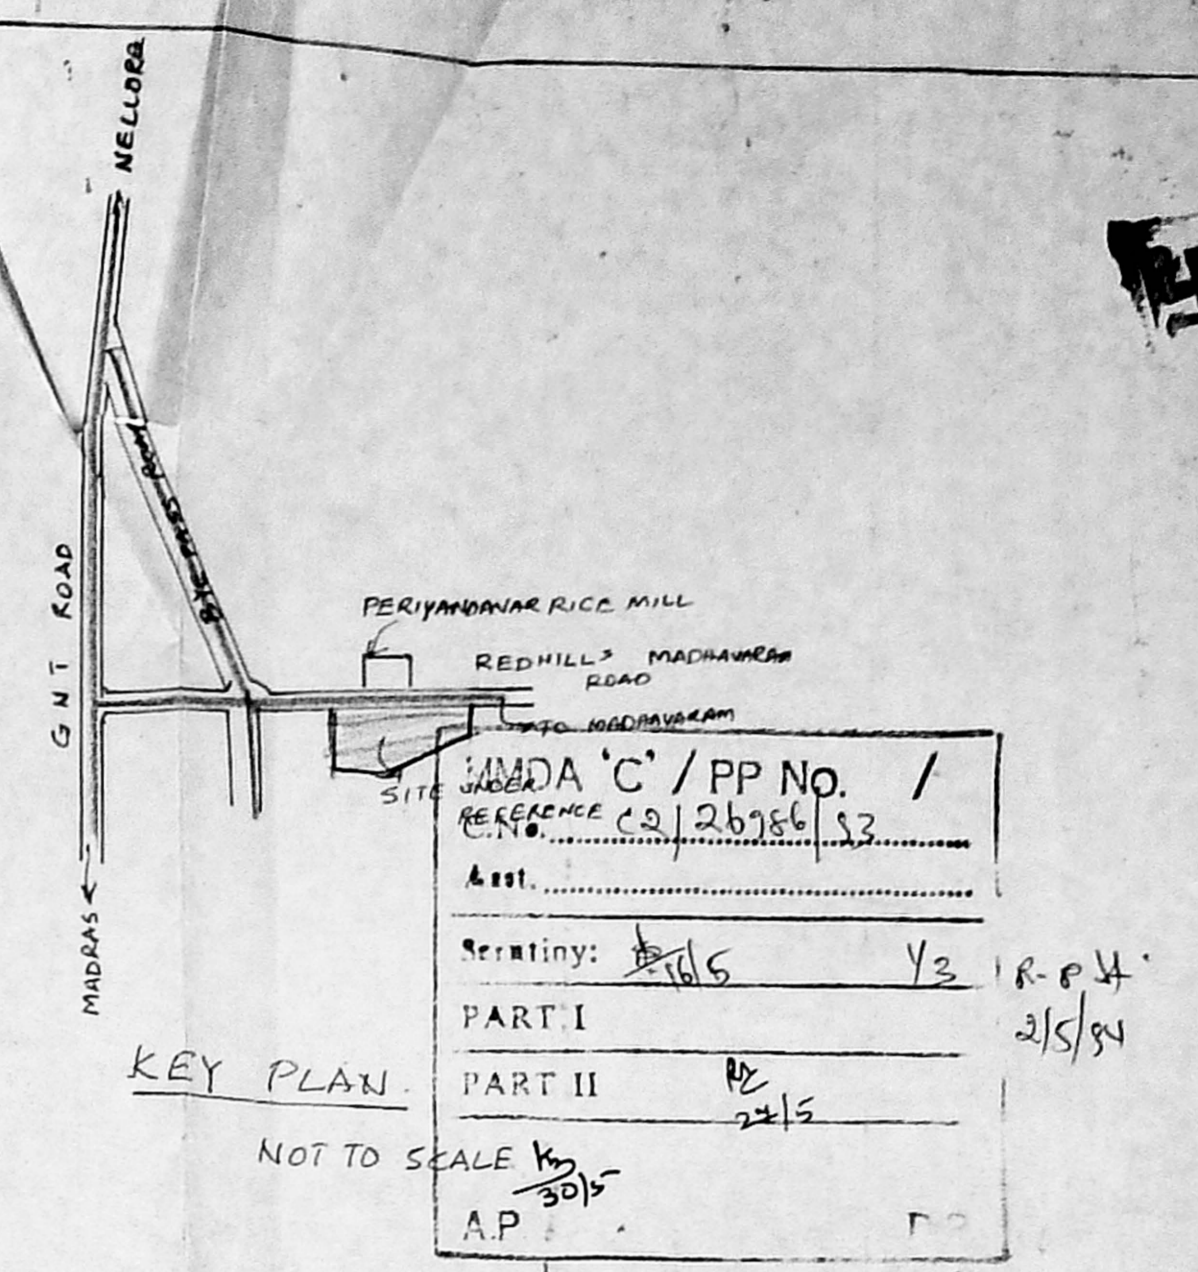 NELLORE
BYE PASS ROAD
GNT ROAD
PERIYANDAVAR RICE MILL
REDHILLS MADHAVARAM
ROAD
TO MADHAVARAM
SITE UNDER
REFERENCE
MADRAS
KEY PLAN
NOT TO SCALE
MMDA 'C' / PP No. /
C.No. C2/26986/93
Asst.
Scrutiny: 16/5
PART I
PART II
27/5
30/5
A.P
2/5/94